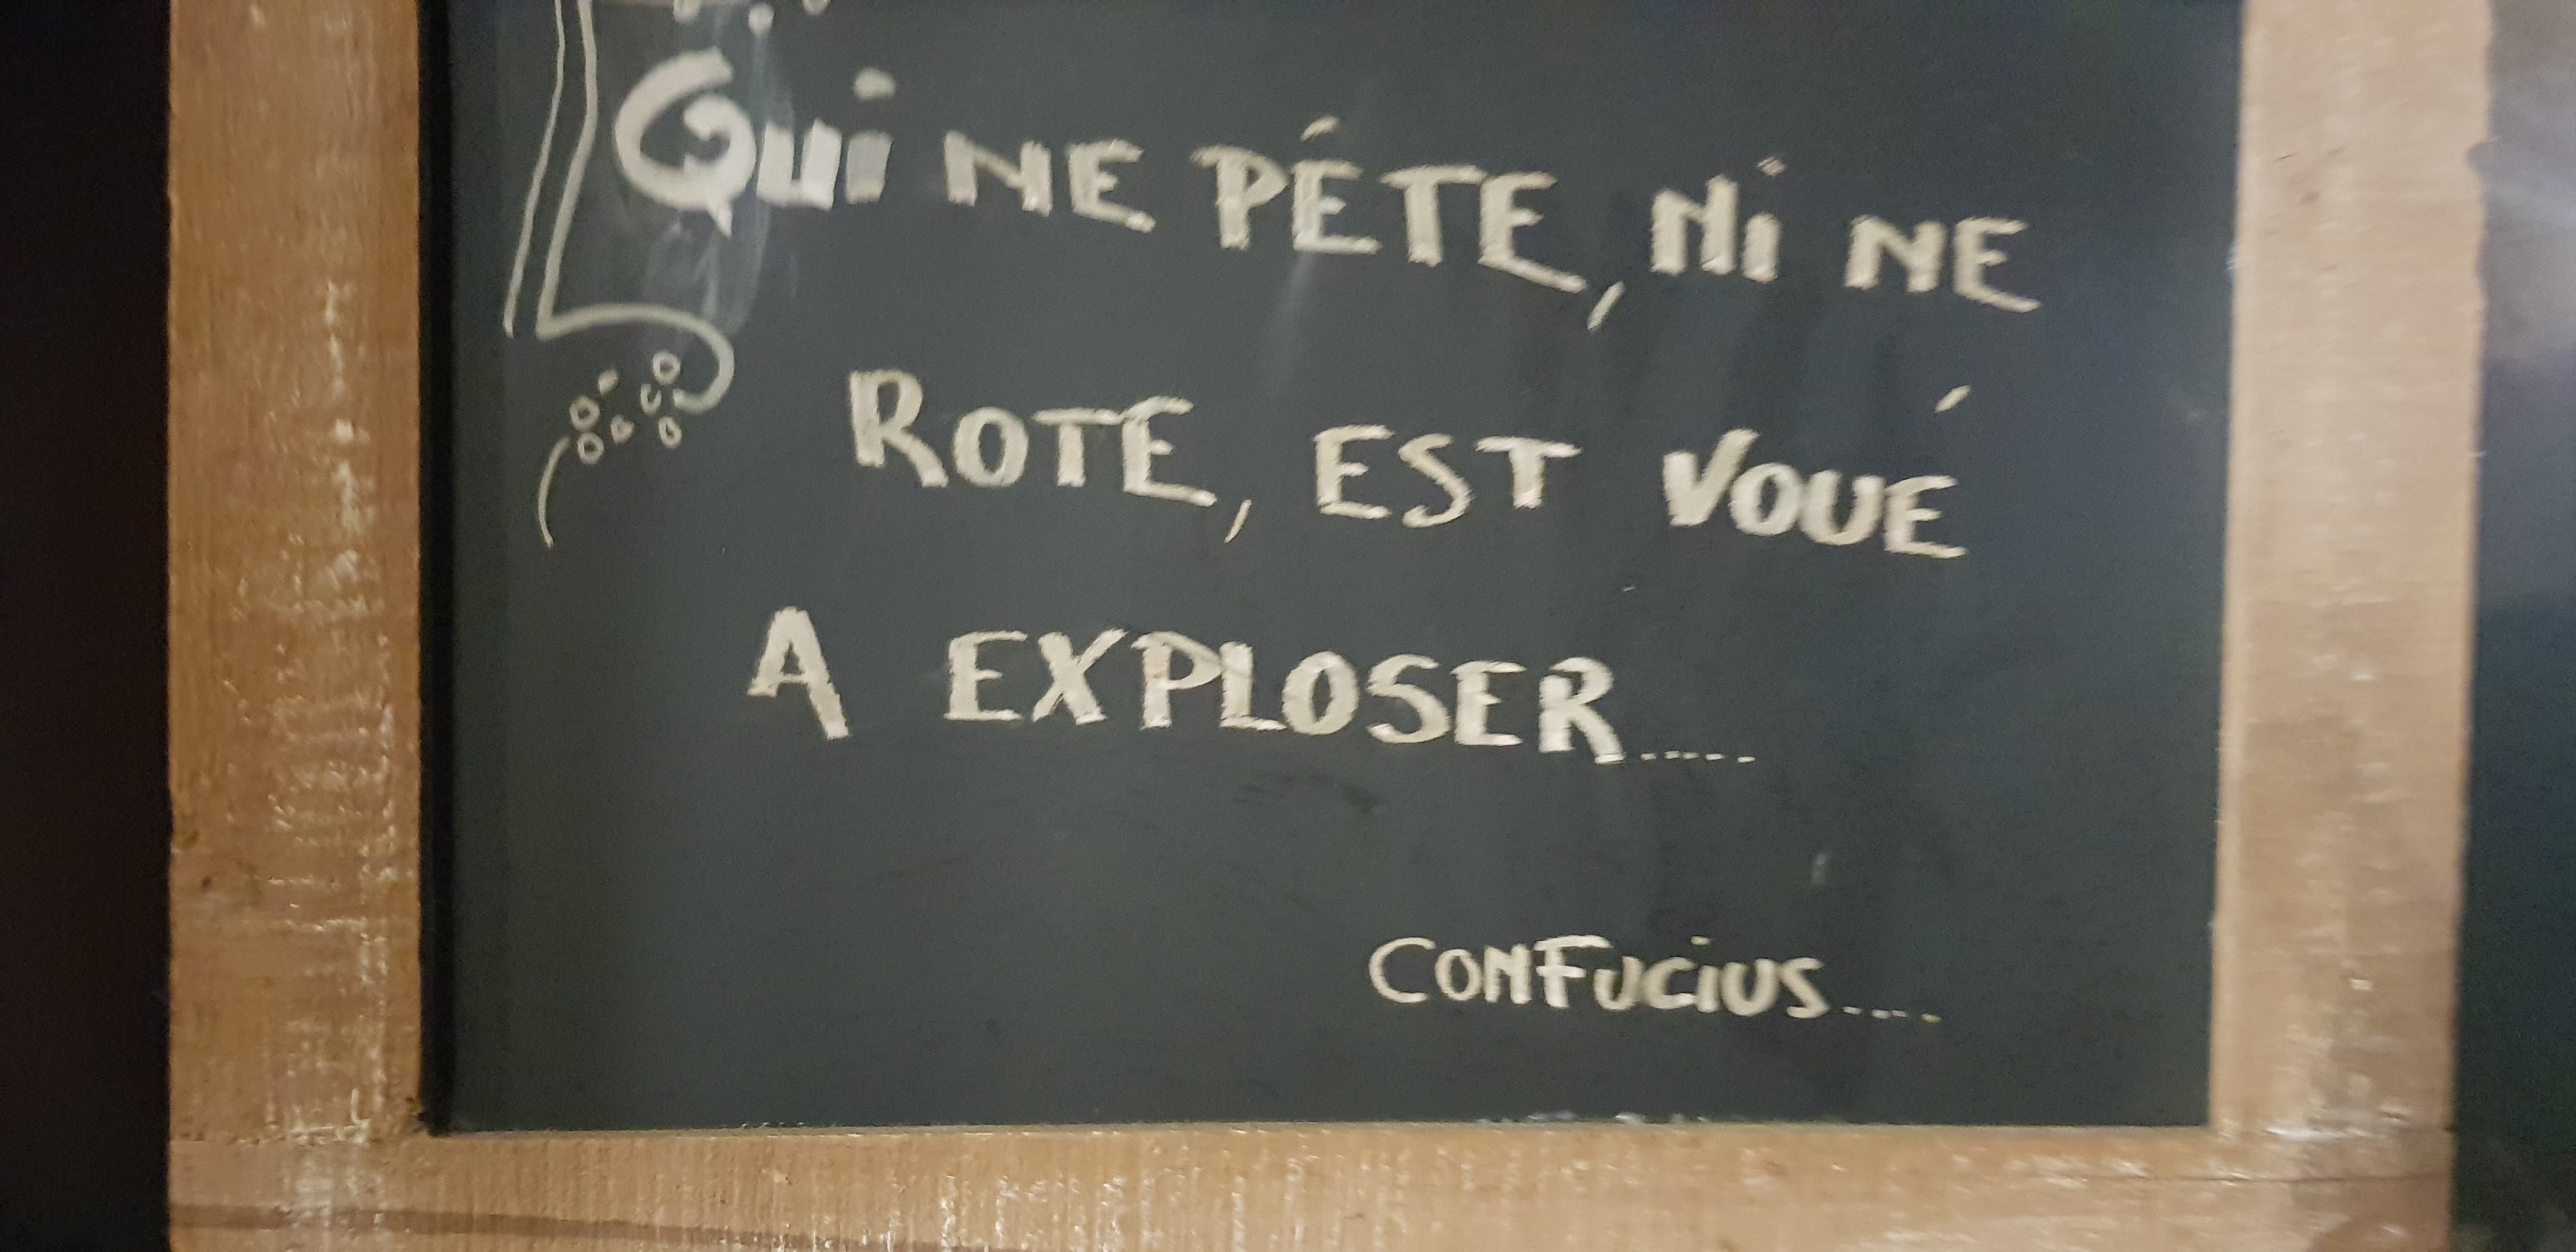 Qui NE PÉTE, Ni NE
ROTE, EST VOUÉ
A EXPLOSER.....
CONFUCiUS.....